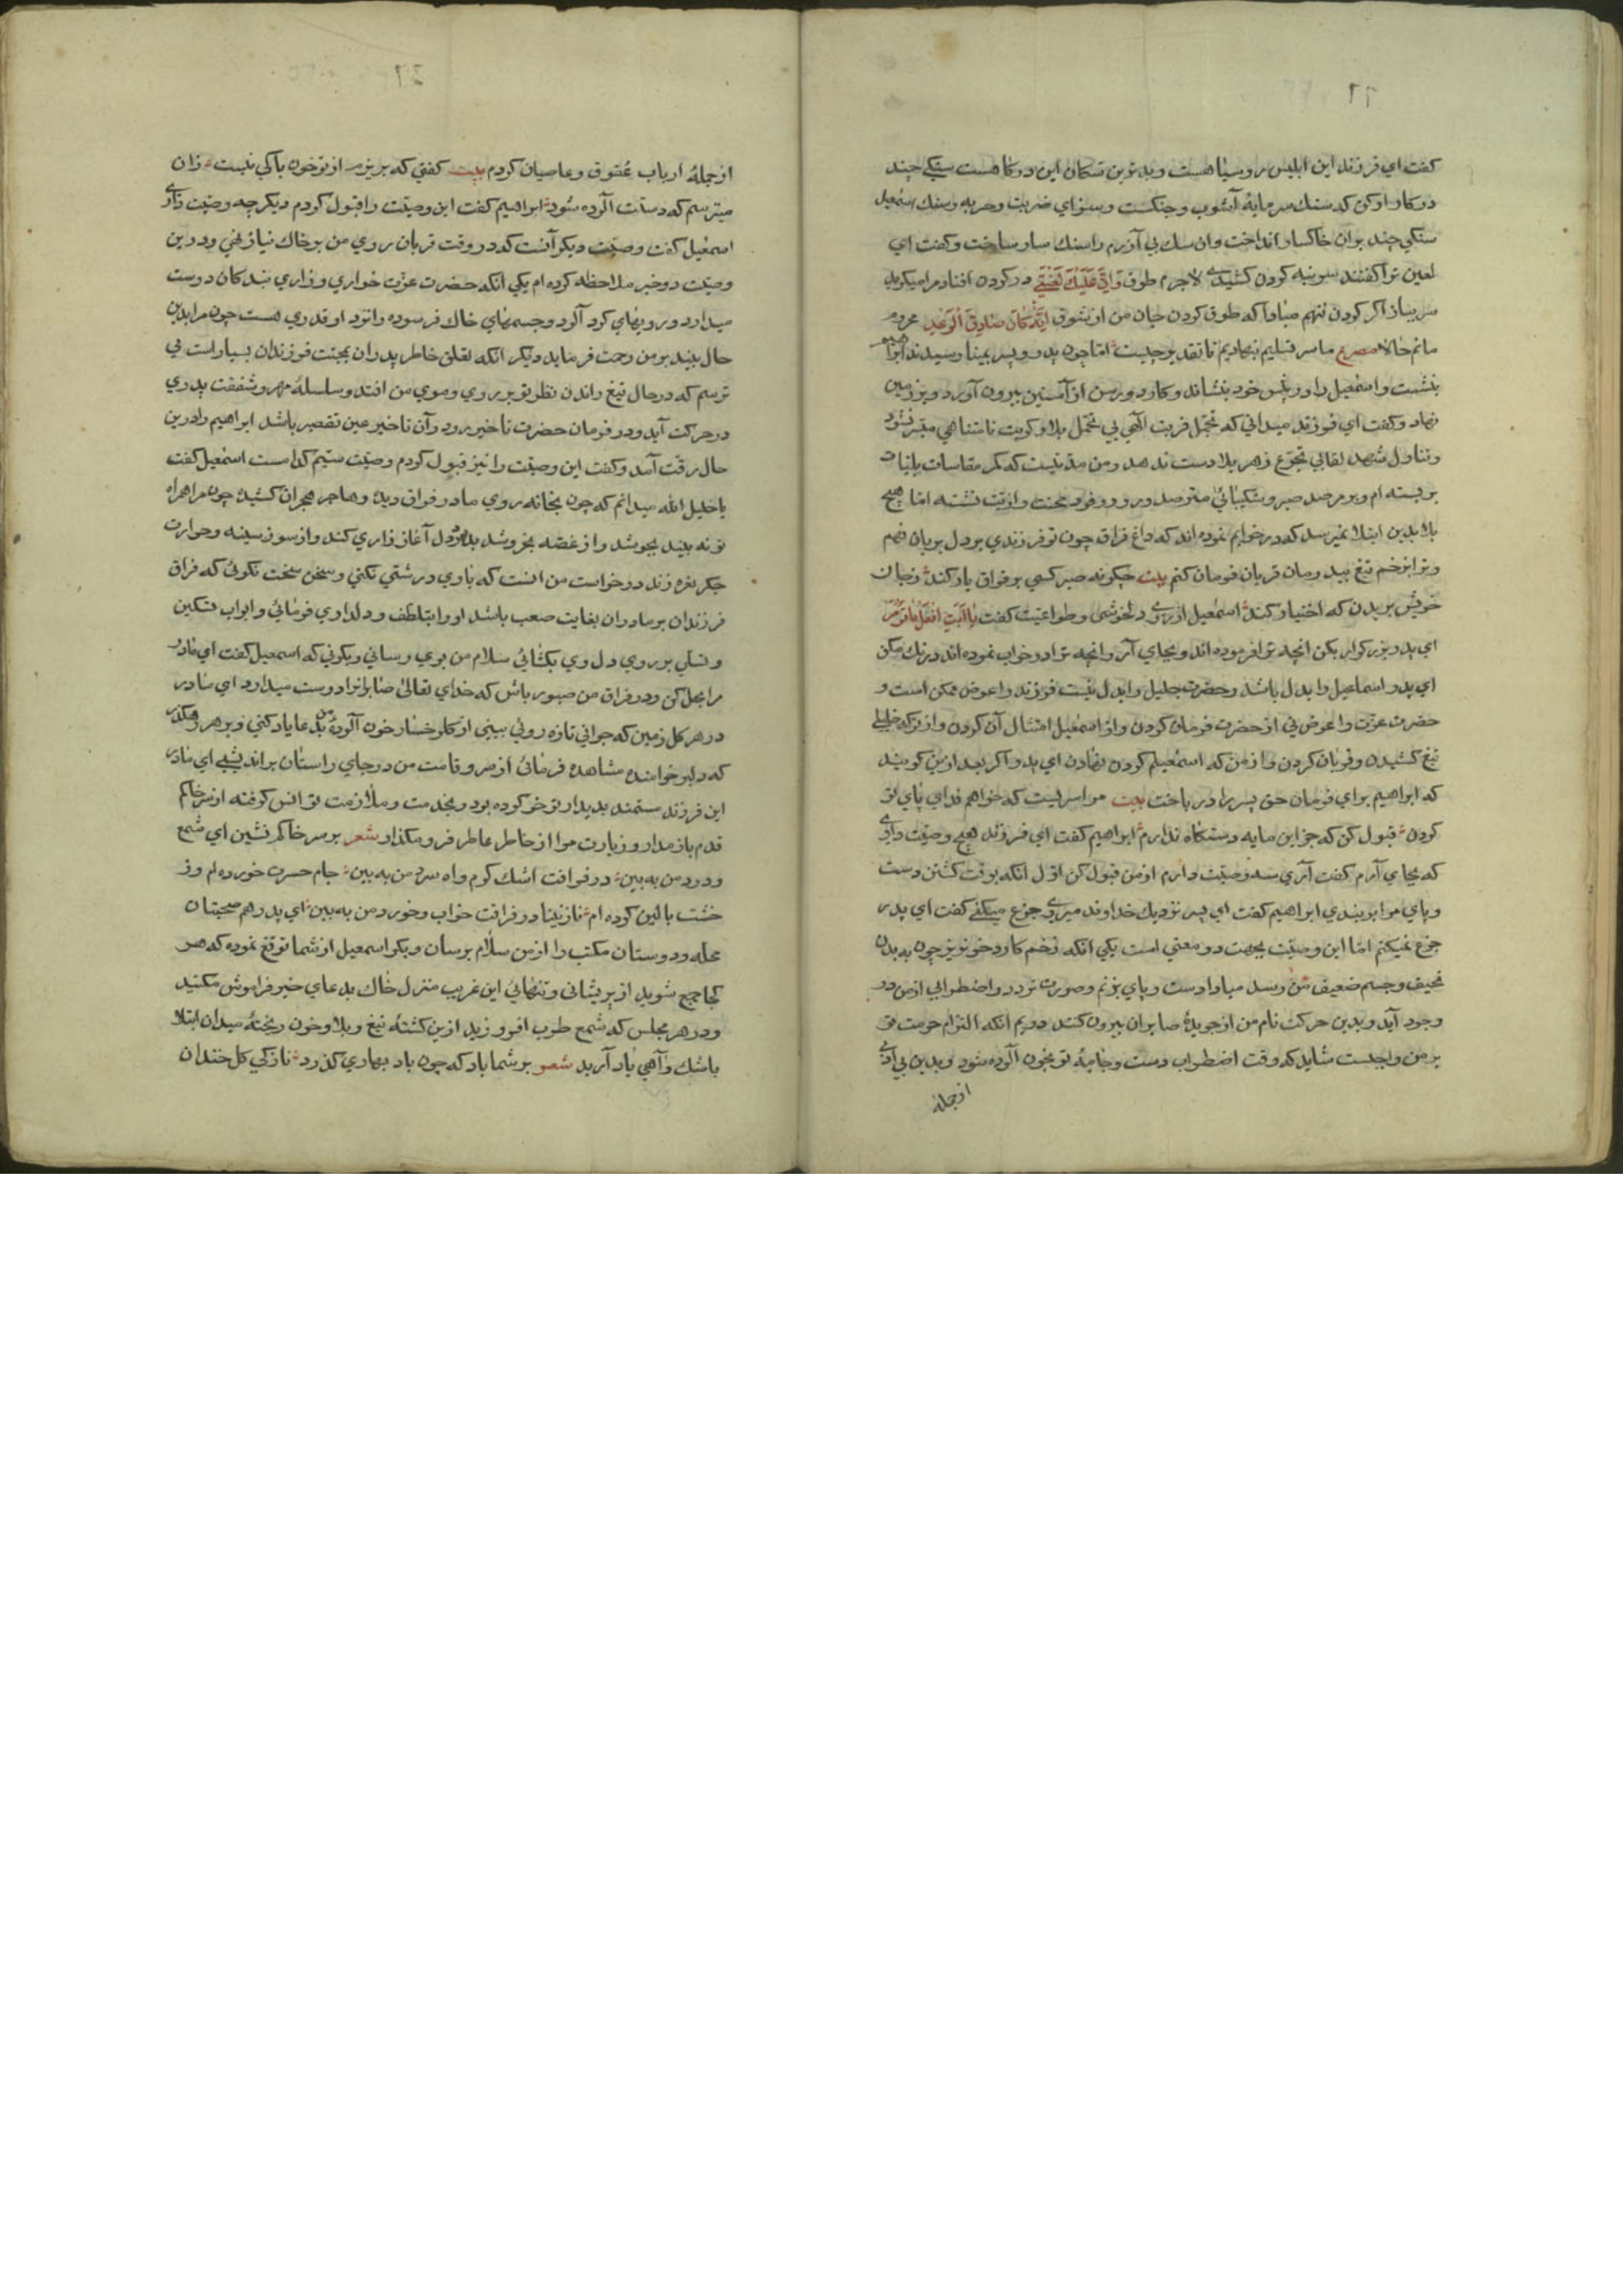 گفت ای فرزند این ابلیس روسیاهست و بدترین سگان این درگاهست سنگی چند
در کار او کن که سنگ سرمایهٔ آشوب و جنگست و سزای ضربت و حربه و سنگ اسمعیل
سنگی چند بران خاکسار انداخت وان سگ بی آزرم را سنگ سار ساخت و گفت ای
لعین ترا گفتند سر بنه گردن کشیدی لاجرم طوق وَاِنَّ عَلَيْكَ لَعْنَتِي در گردن افتاد مرا میگوید
سر بباز اگر گردن ننهم مبادا که طوق گردن جان من از شوق اِنَّهُ كَانَ صَادِقَ الْوَعْدِ محروم
مانم حالا مصرع ما سر تسلیم نهادیم تا تقدیر چیست اما چون پدر و پسر بمنا رسیدند ابراهیم
بنشست و اسمعیل را در پیش خود بنشاند و کارد و رسن از آستین بیرون آورد و بر زمین
نهاد و گفت ای فرزند میدانی که تحمل قربت الهی بی تحمل بلا و کربت نامتناهی میسر نشود
و تناول شهد لقا بی تجرع زهر بلا دست ندهد و من مدتیست که کمر مقاسات بلیات
بر بسته ام و بر مرصد صبر و شکیبائی مترصد ورود وفود محنت و اذیت نشسته اما هیچ
بلا بدین ابتلا نمیرسد که در خوابم نموده اند که داغ فراق چون تو فرزندی بر دل بریان نهم
و ترا بزخم تیغ بیدرمان قربان فرمان کنم بیت چگونه صبر کسی بر فراق یار کند ز جان
خویش بریدن که اختیار کند اسمعیل از روی دلخوشی و طواعیت گفت يَا اَبَتِ افْعَلْ مَا تُؤْمَرُ
ای پدر بزرگوار بکن آنچه ترا فرموده اند و بجای آر و انچه ترا در خواب نموده اند درنگ مکن
ای پدر اسماعیل را بدل باشد و حضرت جلیل را بدل نیست فرزند را عوض ممکن است و
حضرت عزت را عوض نی از حضرت فرمان کردن و از اسمعیل امتثال آن کردن و از تو که خلیلی
تیغ کشیدن و قربان کردن و از من که اسمعیلم گردن نهادن ای پدر اگر بعد ازین گویند
که ابراهیم برای فرمان حق پسر را در باخت بیت مرا سریست که خواهم فدای پای تو
کردن قبول کن که جز این مایه دستگاه ندارم ابراهیم گفت ای فرزند هیچ وصیت داری
که بجای آرم گفت آری سه وصیت دارم از من قبول کن اول انکه بوقت کشتن دست
و پای مرا بربندی ابراهیم گفت ای پسر نزدیک خداوند میروی جزع میکنی گفت ای پدر
جزع نمیکنم اما این وصیت بجهت دو معنی است یکی انکه زخم کارد خونریز چون به بدن
نحیف و جسم ضعیف من رسد مبادا دست و پای بزنم و صورت تردد و اضطرابی از من در
وجود آید و بدین حرکت نام من از جریدهٔ صابران بیرون کنند دویم انکه التزام حرمت تو
بر من واجبست شاید که وقت اضطراب دست و جامهٔ تو بخون آلوده شود و بدین بی ادبی
از جمله
از جملهٔ ارباب عقوق و عاصیان گردم بیت گفتی که بریزم از تو خون باکی نیست زان
میترسم که دستت آلوده شود ابراهیم گفت این وصیت را قبول کردم دیگر چه وصیت داری
اسمعیل گفت وصیت دیگر آنست که در وقت قربان روی من بر خاک نیاز نهی و درین
وصیت دو خبر ملاحظه کرده ام یکی انکه حضرت عزت خواری و زاری بندگان دوست
میدارد و رویهای گرد آلود و جسمهای خاک فرسوده را نزد او قدری هست چون مرا بدین
حال بیند بر من رحمت فرماید دیگر انکه تعلق خاطر پدران بمحبت فرزندان بسیارست می
ترسم که در حال تیغ راندن نظر تو بر روی و موی من افتد و سلسلهٔ مهر و شفقت پدری
در حرکت آید و در فرمان حضرت تاخیر رود و آن تاخیر عین تقصیر باشد ابراهیم را درین
حال رقت آمد و گفت این وصیت را نیز قبول کردم وصیت سیم کدامست اسمعیل گفت
یا خلیل الله میدانم که چون بخانه روی مادر فراق دیده و هاجر هجران کشیده چون مرا همراه
تو نه بیند بجوشد و از غصه بخروشد بدرد دل آغاز زاری کند و از سوز سینه و حرارت
جگر نعره زند درخواست من انست که با وی درشتی نکنی و سخن سخت نگوئی که فراق
فرزندان بر مادران بغایت صعب باشد او را بتلطف و دلداری فرمائی و ابواب تسکین
و تسلی بر روی دل وی بکشائی سلام من بوی رسانی و بگوئی که اسمعیل گفت ای مادر
مرا بحل کن و در فراق من صبور باش که خدای تعالی صابرانرا دوست میدارد ای مادر
در هر گل زمین که جوانی تازه روئی ببینی از گلرخسار خون آلودهٔ من بدعا یاد کنی و بر هر رهگذر
که دلبر خرامنده مشاهده فرمائی از سرو قامت من در جای راستان براندیشی ای مادر
این فرزند مستمند بدیدار تو خو کرده بود و بخدمت و ملازمت تو انس گرفته از سر خاکم
قدم باز مدار و زیارت مرا از خاطر عاطر فرو مگذار شعر بر سر خاکم نشین ای شمع
و درد من به بین در فراقت اشک گرم و اه سرد من به بین جام حسرت خورده ام وز
خشت بالین کرده ام نازنینا در فراقت خواب و خورد من به بین ای پدر هم صحبتان
محله و دوستان مکتب را از من سلام برسان و بگو اسمعیل از شما توقع نموده که هر
کجا جمع شوید از پریشانی و تنهائی این غریب منزل خاک بدعای خیر فراموش مکنید
و در هر مجلس که شمع طرب افروزید ازین کشتهٔ تیغ و بلا و خون ریختهٔ میدان ابتلا
باشک و آهی یاد آرید شعر بر شما باد که چون باد بهاری گذرد نازکی گل خندان